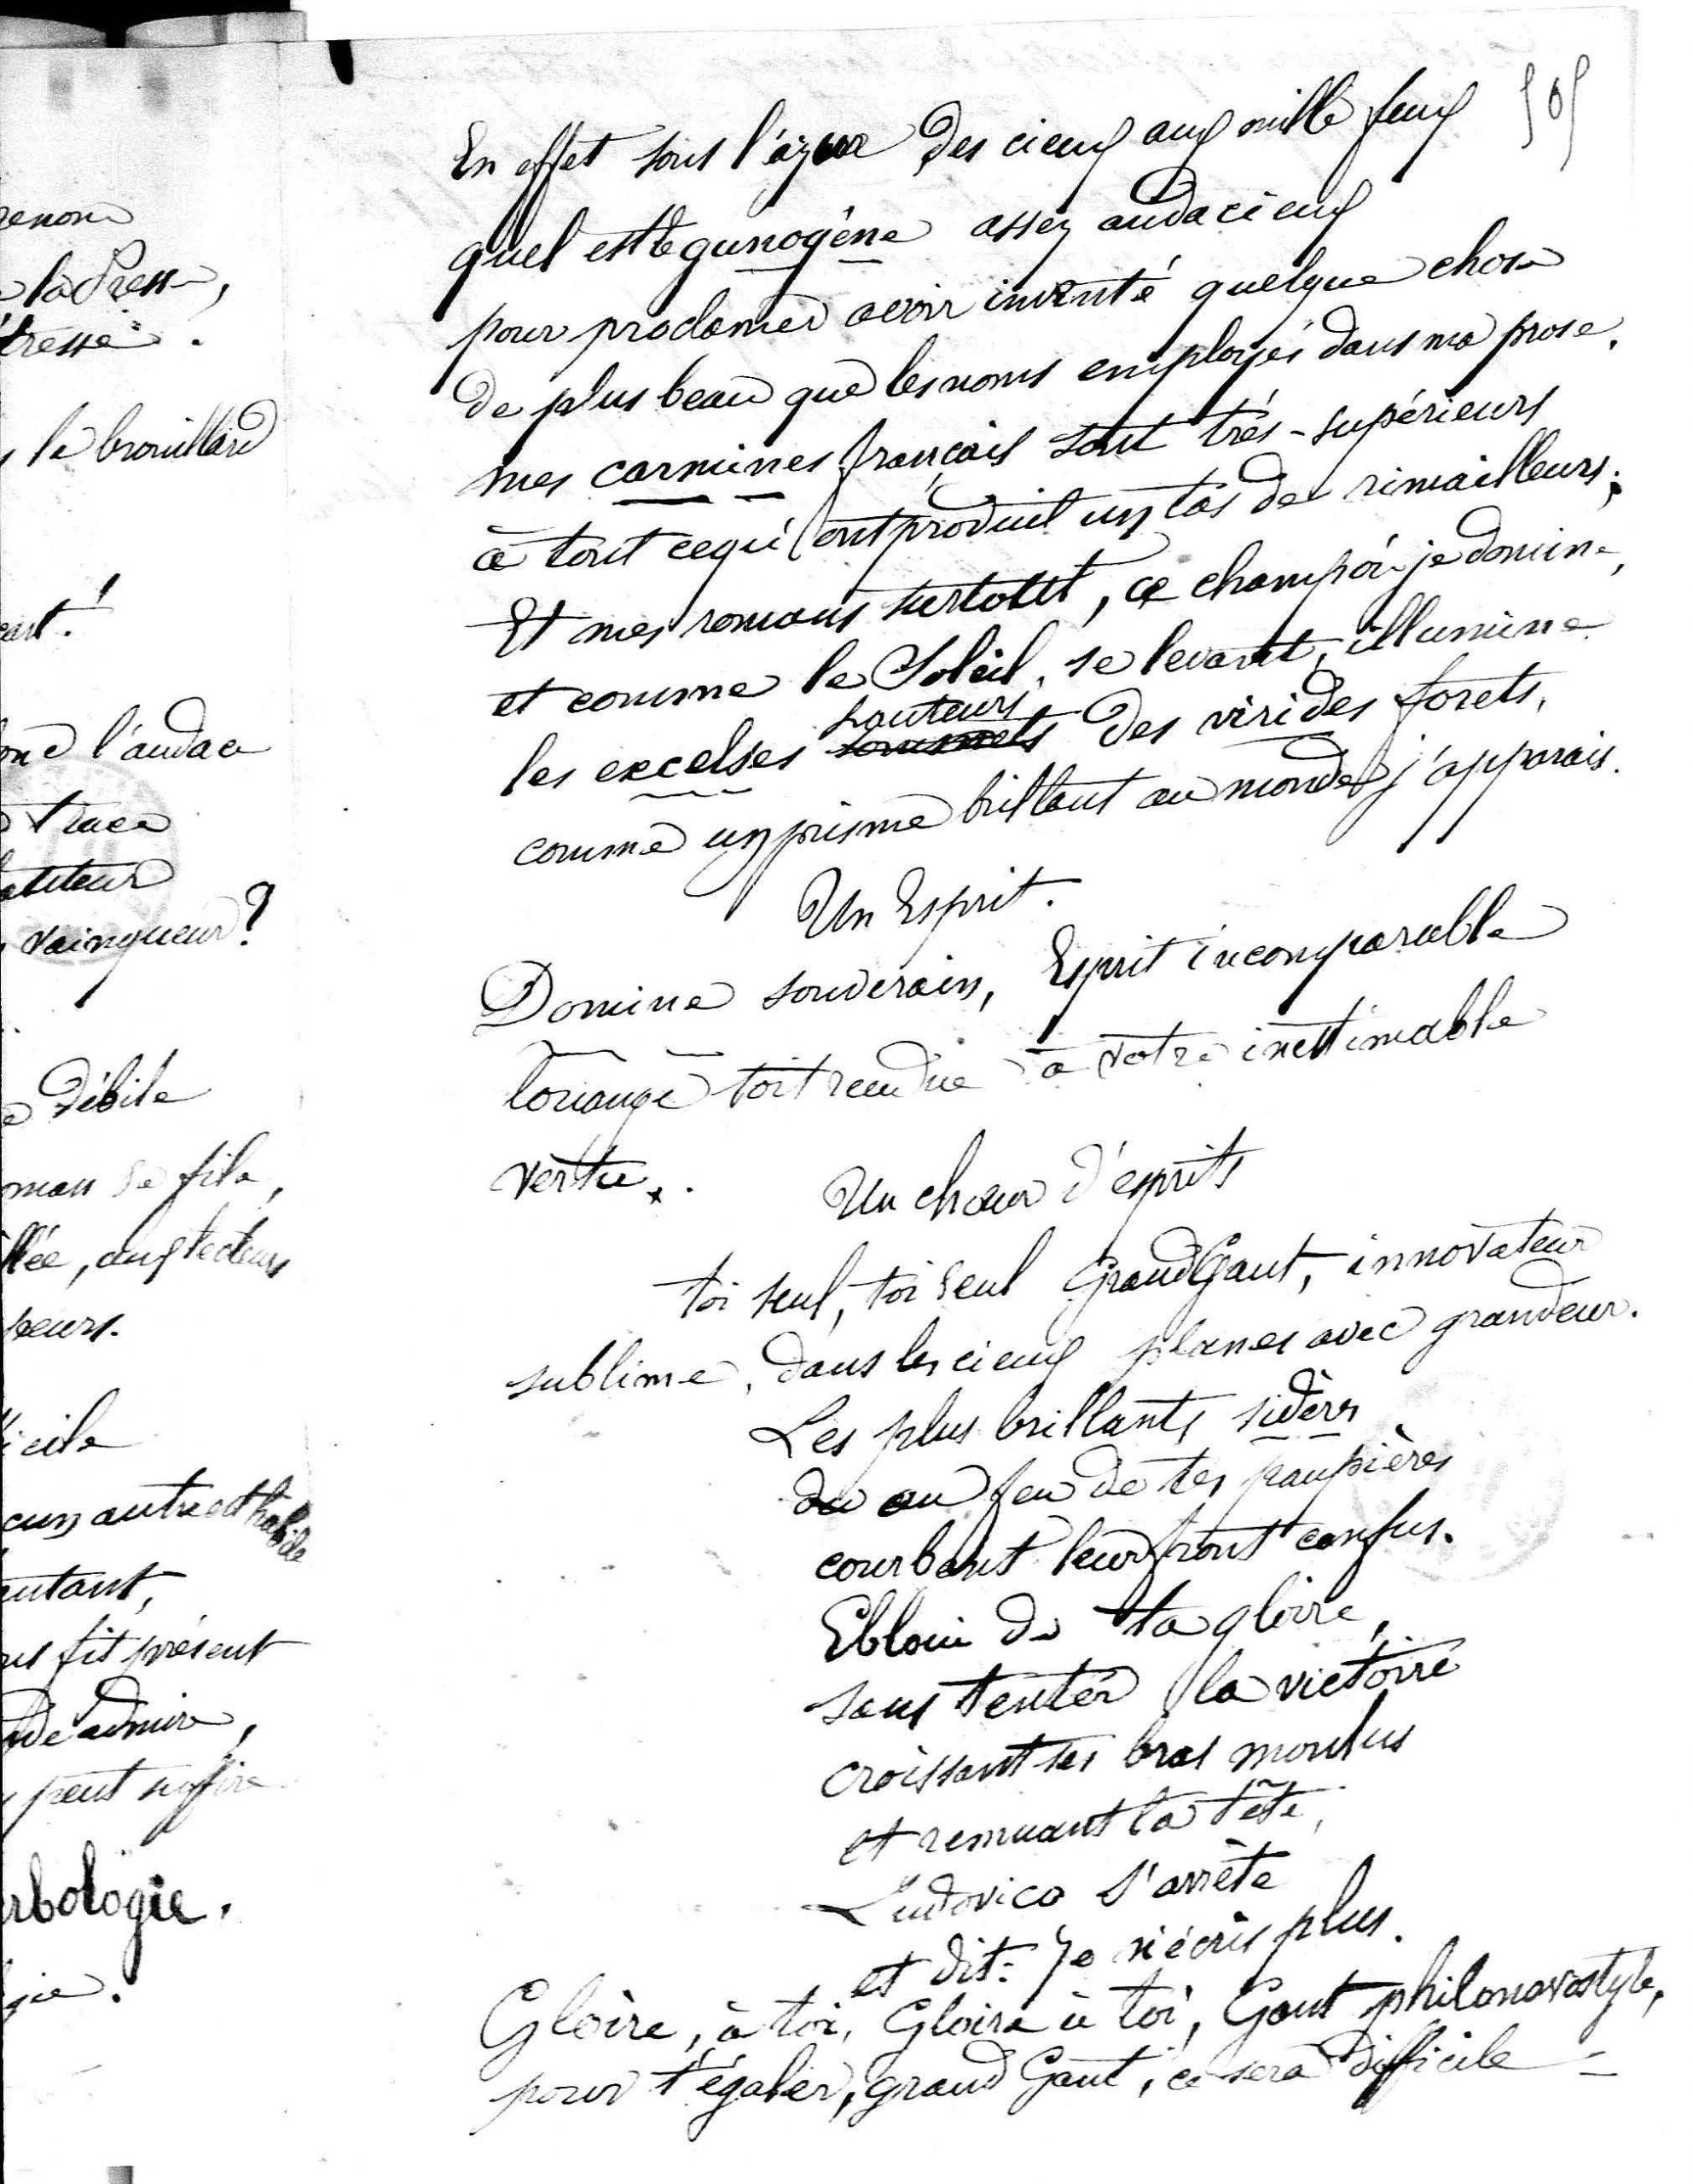 505
En effet sous l'azur des cieux aux mille feux
quel est le gunogène assez audacieux
pour proclamer avoir inventé quelque chose
de plus beau que les noms employés dans ma prose.
mes carmines français sont très-supérieurs
à tout ce qu'ont produit un tas de rimailleurs;
Et mes romans surtout, ce champ où je domine,
et comme le Soleil, se levant, illumine
hauteurs
les excelses sommets des virides forets,
comme un prisme brillant au monde j'apparais.
Un Esprit.
Domine souverain, Esprit incomparable
louange soit rendue à votre inestimable
vertu.
Un chœur d'esprits
toi seul, toi seul Grand Gaut, innovateur
sublime, dans les cieux planes avec grandeur.
Les plus brillants sidères
du au feu de tes paupières
courbent leur front confus.
Ebloui de ta gloire,
sans tenter la victoire
croissant ses bras moulus
et remuant la tête,
Ludovico s'arrête
et dit: Je n'écris plus.
Gloire, à toi, Gloire à toi, Gaut philonovostyle,
pour t'égaler, grand Gaut, ce sera difficile
renom
la Presse,
tresse.
le brouillard
l'audace
trace
vainqueur?
débile
roman se file,
lée, aux lecteurs
peurs.
icile
cun autre est habile
autant,
us fit présent
admire,
peut suffire
rbologie.
gie.